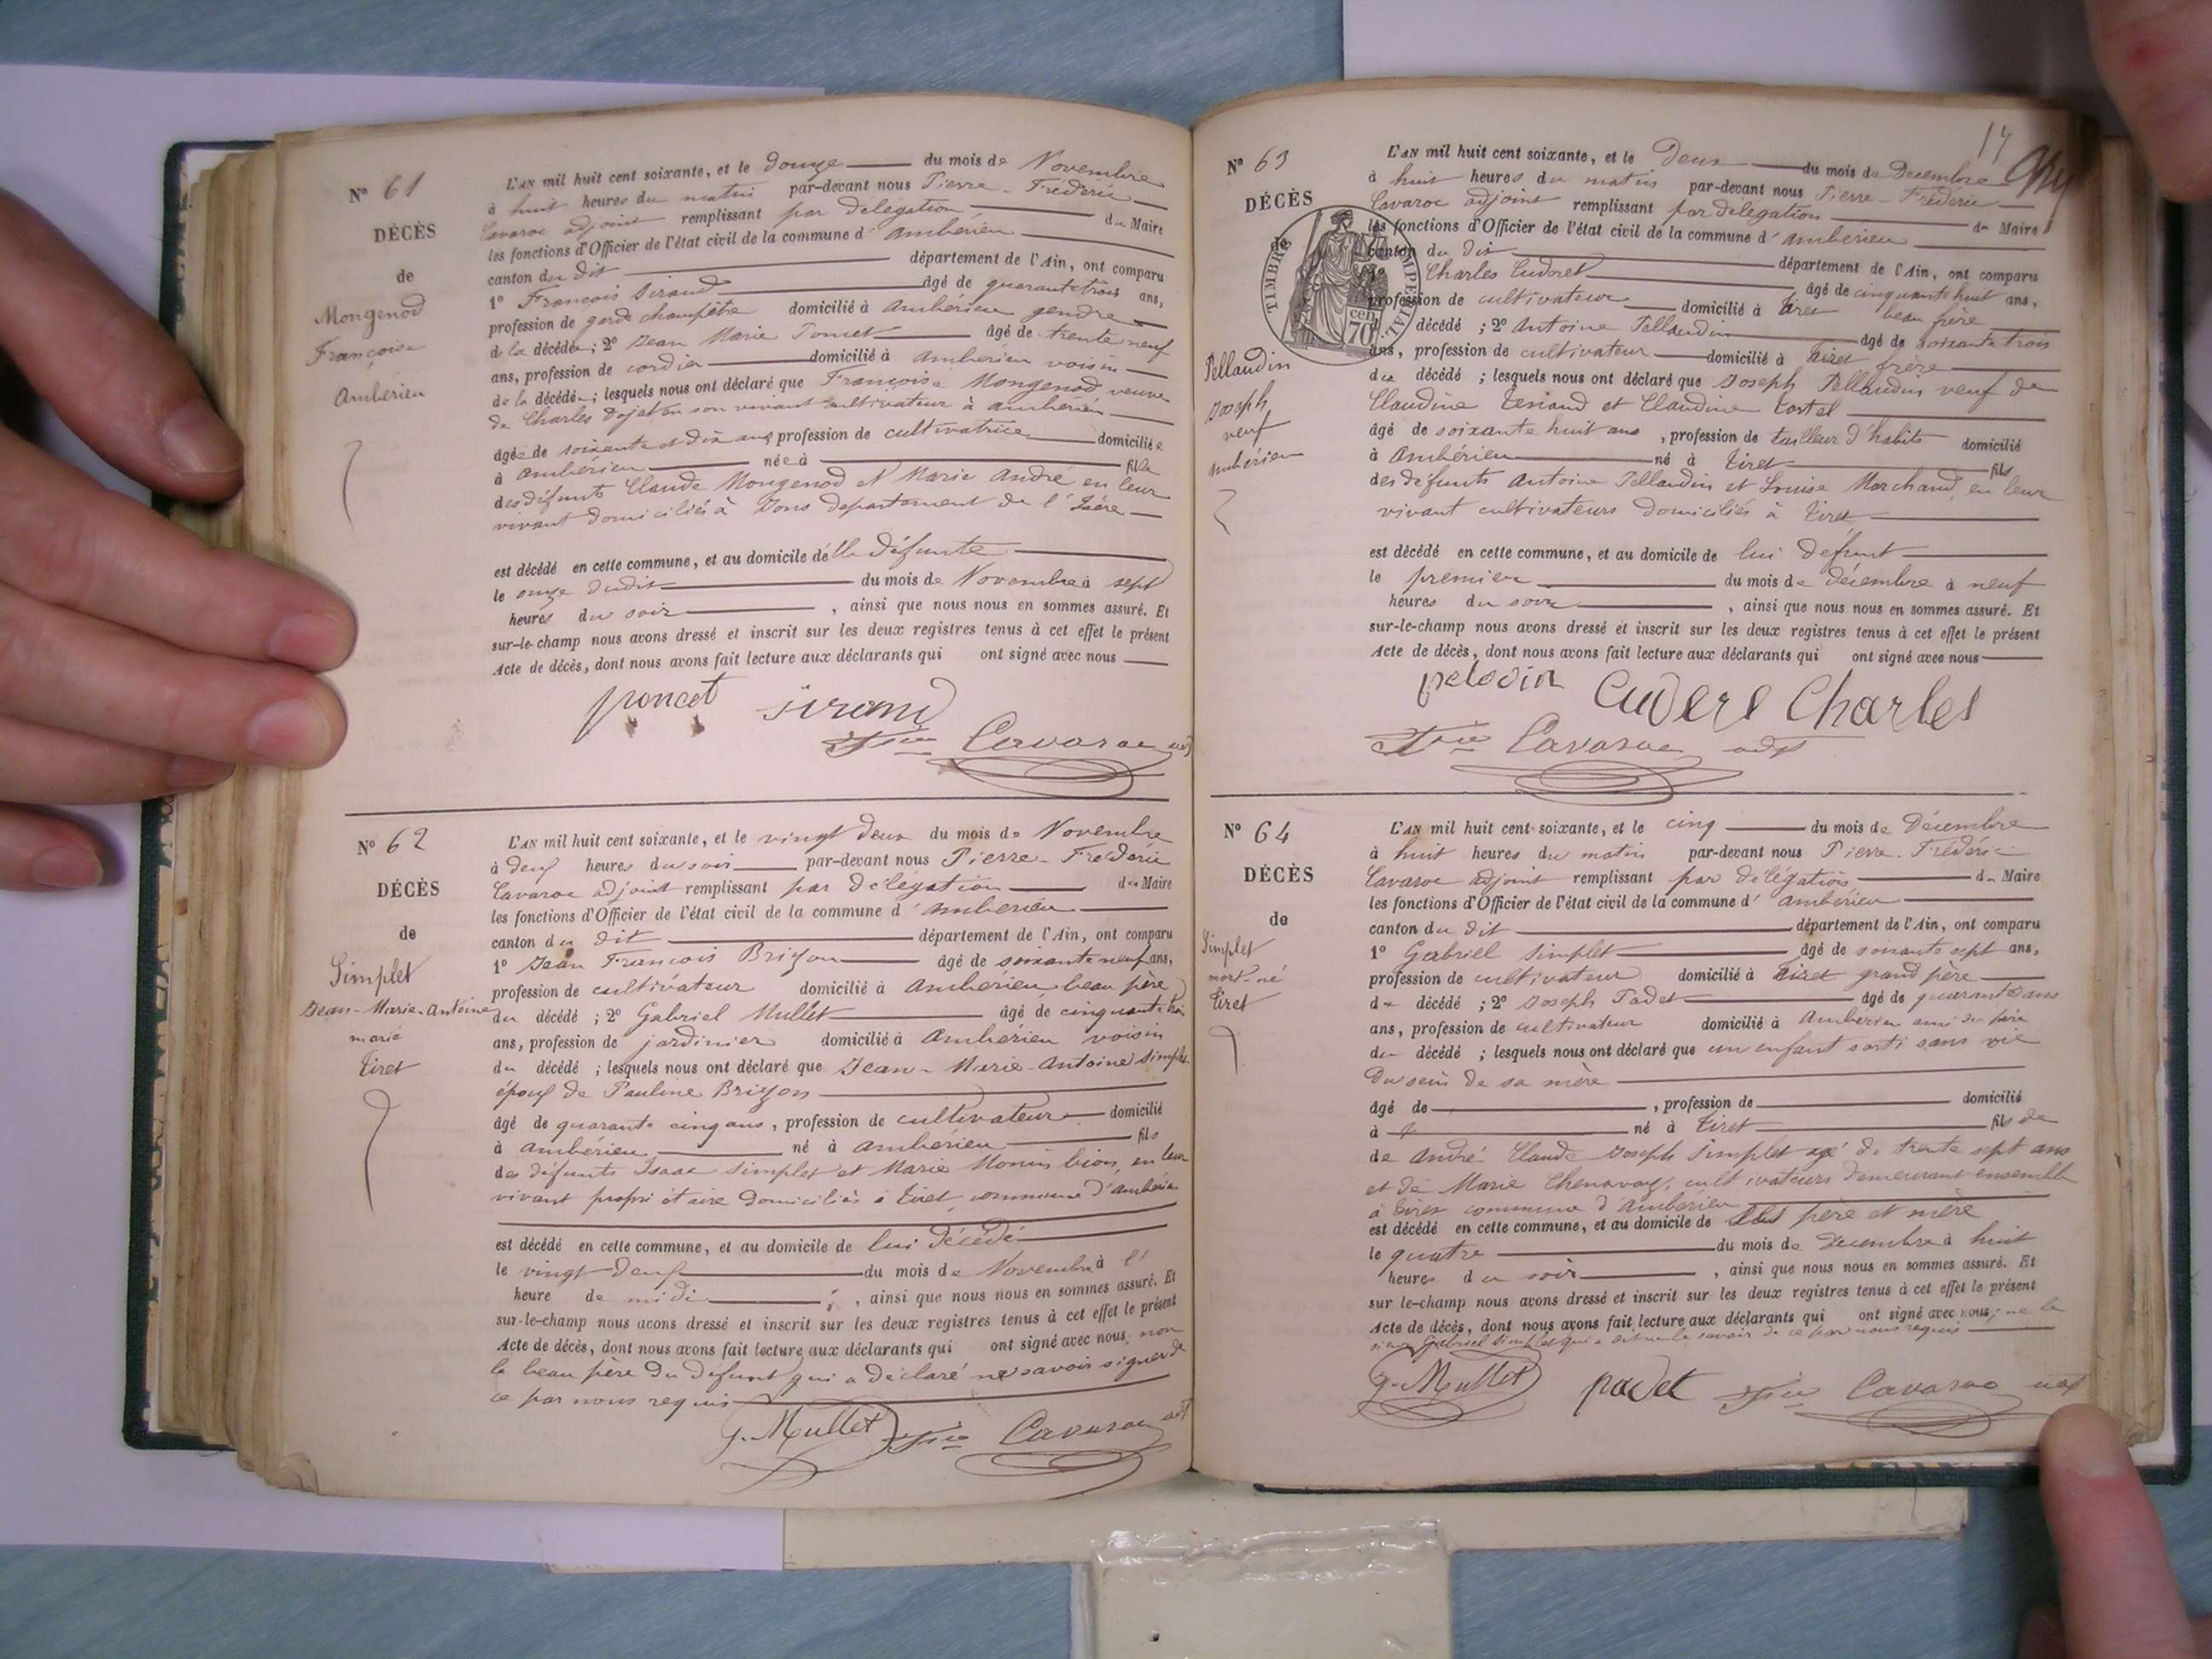 N° 61
DÉCÈS
de
Mongenod
Françoise
Ambérieu
L'AN mil huit cent soixante, et le douze du mois de Novembre
à huit heures du matin par-devant nous Pierre-Frédéric
Cavaroc adjoint remplissant par délégation du Maire
les fonctions d'Officier de l'état civil de la commune d'Ambérieu
canton du dit département de l'Ain, ont comparu
1° François Sirand âgé de quarante trois ans,
profession de garde champêtre domicilié à Ambérieu gendre
de la décédée ; 2° Jean Marie Poncet âgé de trente neuf
ans, profession de cordier domicilié à Ambérieu voisin
de la décédée ; lesquels nous ont déclaré que Françoise Mongenod veuve
de Charles Dojat en son vivant cultivateur à Ambérieu
âgée de soixante et dix ans profession de cultivatrice domiciliée
à Ambérieu née à fille
des défunts Claude Mongenod et Marie André en leur
vivant domiciliés à département de l'Isère
est décédé en cette commune, et au domicile d'elle défunte
le onze dudit du mois de Novembre à sept
heures du soir , ainsi que nous nous en sommes assuré. Et
sur-le-champ nous avons dressé et inscrit sur les deux registres tenus à cet effet le présent
Acte de décès, dont nous avons fait lecture aux déclarants qui ont signé avec nous
poncet sirand
Cavaroc adj
N° 62
DÉCÈS
de
Simplet
Jean-Marie-Antoine
marié
Tiret
L'AN mil huit cent soixante, et le vingt deux du mois de Novembre
à deux heures du soir par-devant nous Pierre-Frédéric
Cavaroc adjoint remplissant par délégation du Maire
les fonctions d'Officier de l'état civil de la commune d'Ambérieu
canton du dit département de l'Ain, ont comparu
1° Jean François Brizon âgé de soixante neuf ans,
profession de cultivateur domicilié à Ambérieu beau père
du décédé ; 2° Gabriel Mullet âgé de cinquante trois
ans, profession de jardinier domicilié à Ambérieu voisin
du décédé ; lesquels nous ont déclaré que Jean-Marie-Antoine Simplet
époux de Pauline Brizon
âgé de quarante cinq ans, profession de cultivateur domicilié
à Ambérieu né à Ambérieu fils
des défunts Isaac Simplet et Marie Monin en leur
vivant propriétaire domiciliés à Tiret commune d'Ambérieu
est décédé en cette commune, et au domicile de lui décédé
le vingt deux du mois de Novembre à l'
heure de midi , ainsi que nous nous en sommes assuré. Et
sur-le-champ nous avons dressé et inscrit sur les deux registres tenus à cet effet le présent
Acte de décès, dont nous avons fait lecture aux déclarants qui ont signé avec nous, non
le beau père du défunt qui a déclaré ne savoir signer de
ce par nous requis
G. Mullet Cavaroc adj
17
N° 63
DÉCÈS
de
TIMBRE IMPÉRIAL
70 cen.
Pellaudin
Joseph
veuf
Ambérieu
L'AN mil huit cent soixante, et le Deux du mois de Decembre
à huit heures du matin par-devant nous Pierre-Frédéric
Cavaroc adjoint remplissant par délégation du Maire
les fonctions d'Officier de l'état civil de la commune d'Ambérieu
canton du dit département de l'Ain, ont comparu
1° Charles Cudoret âgé de cinquante huit ans,
profession de cultivateur domicilié à Tiret beau frère
décédé ; 2° Antoine Pellaudin âgé de soixante trois
ans, profession de cultivateur domicilié à Tiret frère
du décédé ; lesquels nous ont déclaré que Joseph Pellaudin veuf de
Claudine et Claudine
âgé de soixante huit ans, profession de tailleur d'habits domicilié
à Ambérieu né à Tiret fils
des défunts Antoine Pellaudin et Louise Marchand en leur
vivant cultivateurs domiciliés à Tiret
est décédé en cette commune, et au domicile de lui défunt
le premier du mois de décembre à neuf
heures du soir , ainsi que nous nous en sommes assuré. Et
sur-le-champ nous avons dressé et inscrit sur les deux registres tenus à cet effet le présent
Acte de décès, dont nous avons fait lecture aux déclarants qui ont signé avec nous
pelodin Cuderel Charles
Cavaroc adjt
N° 64
DÉCÈS
de
Simplet
mort-né
Tiret
L'AN mil huit cent soixante, et le cinq du mois de Décembre
à huit heures du matin par-devant nous Pierre-Frédéric
Cavaroc adjoint remplissant par délégation du Maire
les fonctions d'Officier de l'état civil de la commune d'Ambérieu
canton du dit département de l'Ain, ont comparu
1° Gabriel Simplet âgé de soixante sept ans,
profession de cultivateur domicilié à Tiret grand père
du décédé ; 2° Joseph Padet âgé de quarante ans
ans, profession de cultivateur domicilié à Ambérieu ami du père
du décédé ; lesquels nous ont déclaré que un enfant sorti sans vie
Du sein de sa mère
âgé de , profession de domicilié
à né à Tiret fils de
de André Claude Joseph Simplet agé de trente sept ans
et de Marie Chenavay, cultivateurs demeurant ensemble
à Tiret commune d'Ambérieu
est décédé en cette commune, et au domicile de ses père et mère
le quatre du mois de Decembre à huit
heures du soir , ainsi que nous nous en sommes assuré. Et
sur le-champ nous avons dressé et inscrit sur les deux registres tenus à cet effet le présent
Acte de décès, dont nous avons fait lecture aux déclarants qui ont signé avec nous,
Gabriel Simplet qui a savoir de ce par nous requis
G. Mullet padet Cavaroc adj